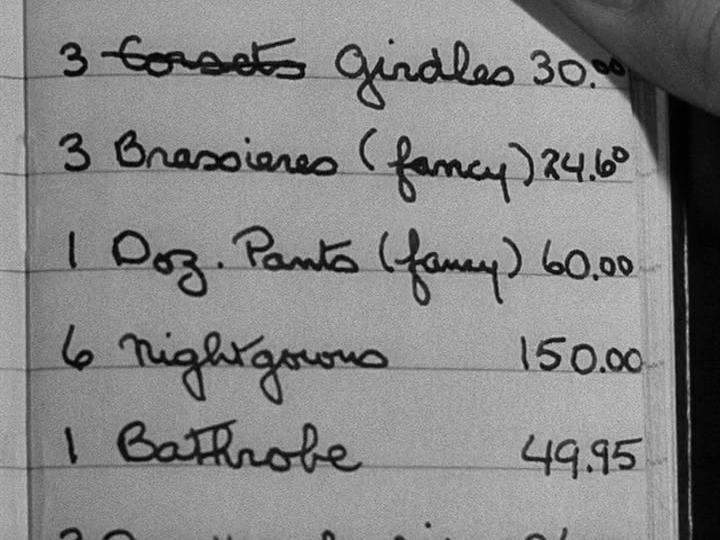 3 Corsets Girdles 30.00
3 Brassieres (fancy) 24.60
1 Doz. Pants (fancy) 60.00
6 Nightgowns 150.00
1 Bathrobe 49.95